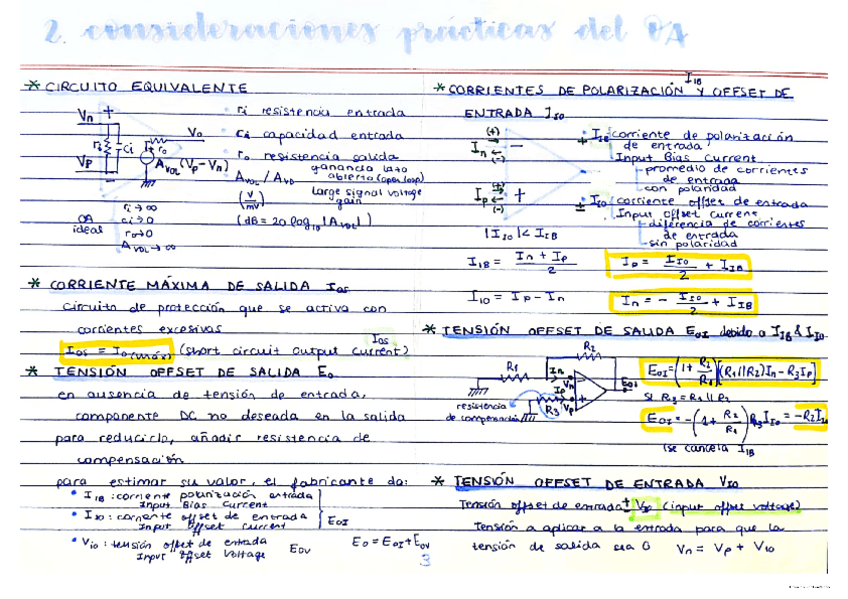 2. consideraciones prácticas del OA
* CIRCUITO EQUIVALENTE
Vn +
ri
Ci
ro
Vo
AVOL (Vp-Vn)
Vp -
ri resistencia entrada
Ci capacidad entrada
ro resistencia salida
AVOL / AVD ganancia lazo abierto (open loop)
(V/mV) large signal voltage gain
(dB = 20 log10 |AVOL|)
OA ideal
ri → ∞
ci → 0
ro → 0
AVOL → ∞
* CORRIENTE MÁXIMA DE SALIDA IOS
Circuito de protección que se activa con
corrientes excesivas
IOS
IOS = IO(máx) (short circuit output current)
* TENSIÓN OFFSET DE SALIDA Eo
en ausencia de tensión de entrada,
componente DC no deseada en la salida
para reducirlo, añadir resistencia de
compensación
para estimar su valor, el fabricante da:
• IIB : corriente polarización entrada
Input Bias Current
• IIO : corriente offset de entrada
Input offset current
EOI
• Vio : tensión offset de entrada
Input offset voltage
EOV
EO = EOI + EOV
* CORRIENTES DE POLARIZACIÓN IIB Y OFFSET DE
ENTRADA IIO
(+)
In
(-)
-
(+)
Ip
(-)
+
+ IIB corriente de polarización
de entrada
Input Bias Current
promedio de corrientes
de entrada
con polaridad
± IIO corriente offset de entrada
Input offset current
diferencia de corrientes
de entrada
sin polaridad
|IIO| < IIB
IIB = (In + Ip)/2
Ip = IIO/2 + IIB
IIO = Ip - In
In = - IIO/2 + IIB
* TENSIÓN OFFSET DE SALIDA EOI debido a IIB & IIO
R2
R1
In
Vn
Ip
R3
Vp
EOI
resistencia
de compensación
EOI = (1 + R2/R1)[(R1||R2)In - R3Ip]
si R3 = R1 || R2
EOI = -(1 + R2/R1)R3 IIO = -R2IIO
(se cancela IIB
* TENSIÓN OFFSET DE ENTRADA VIO
Tensión offset de entrada ± VIO (input offset voltage)
Tensión a aplicar a la entrada para que la
tensión de salida sea 0 Vn = Vp + Vio
3